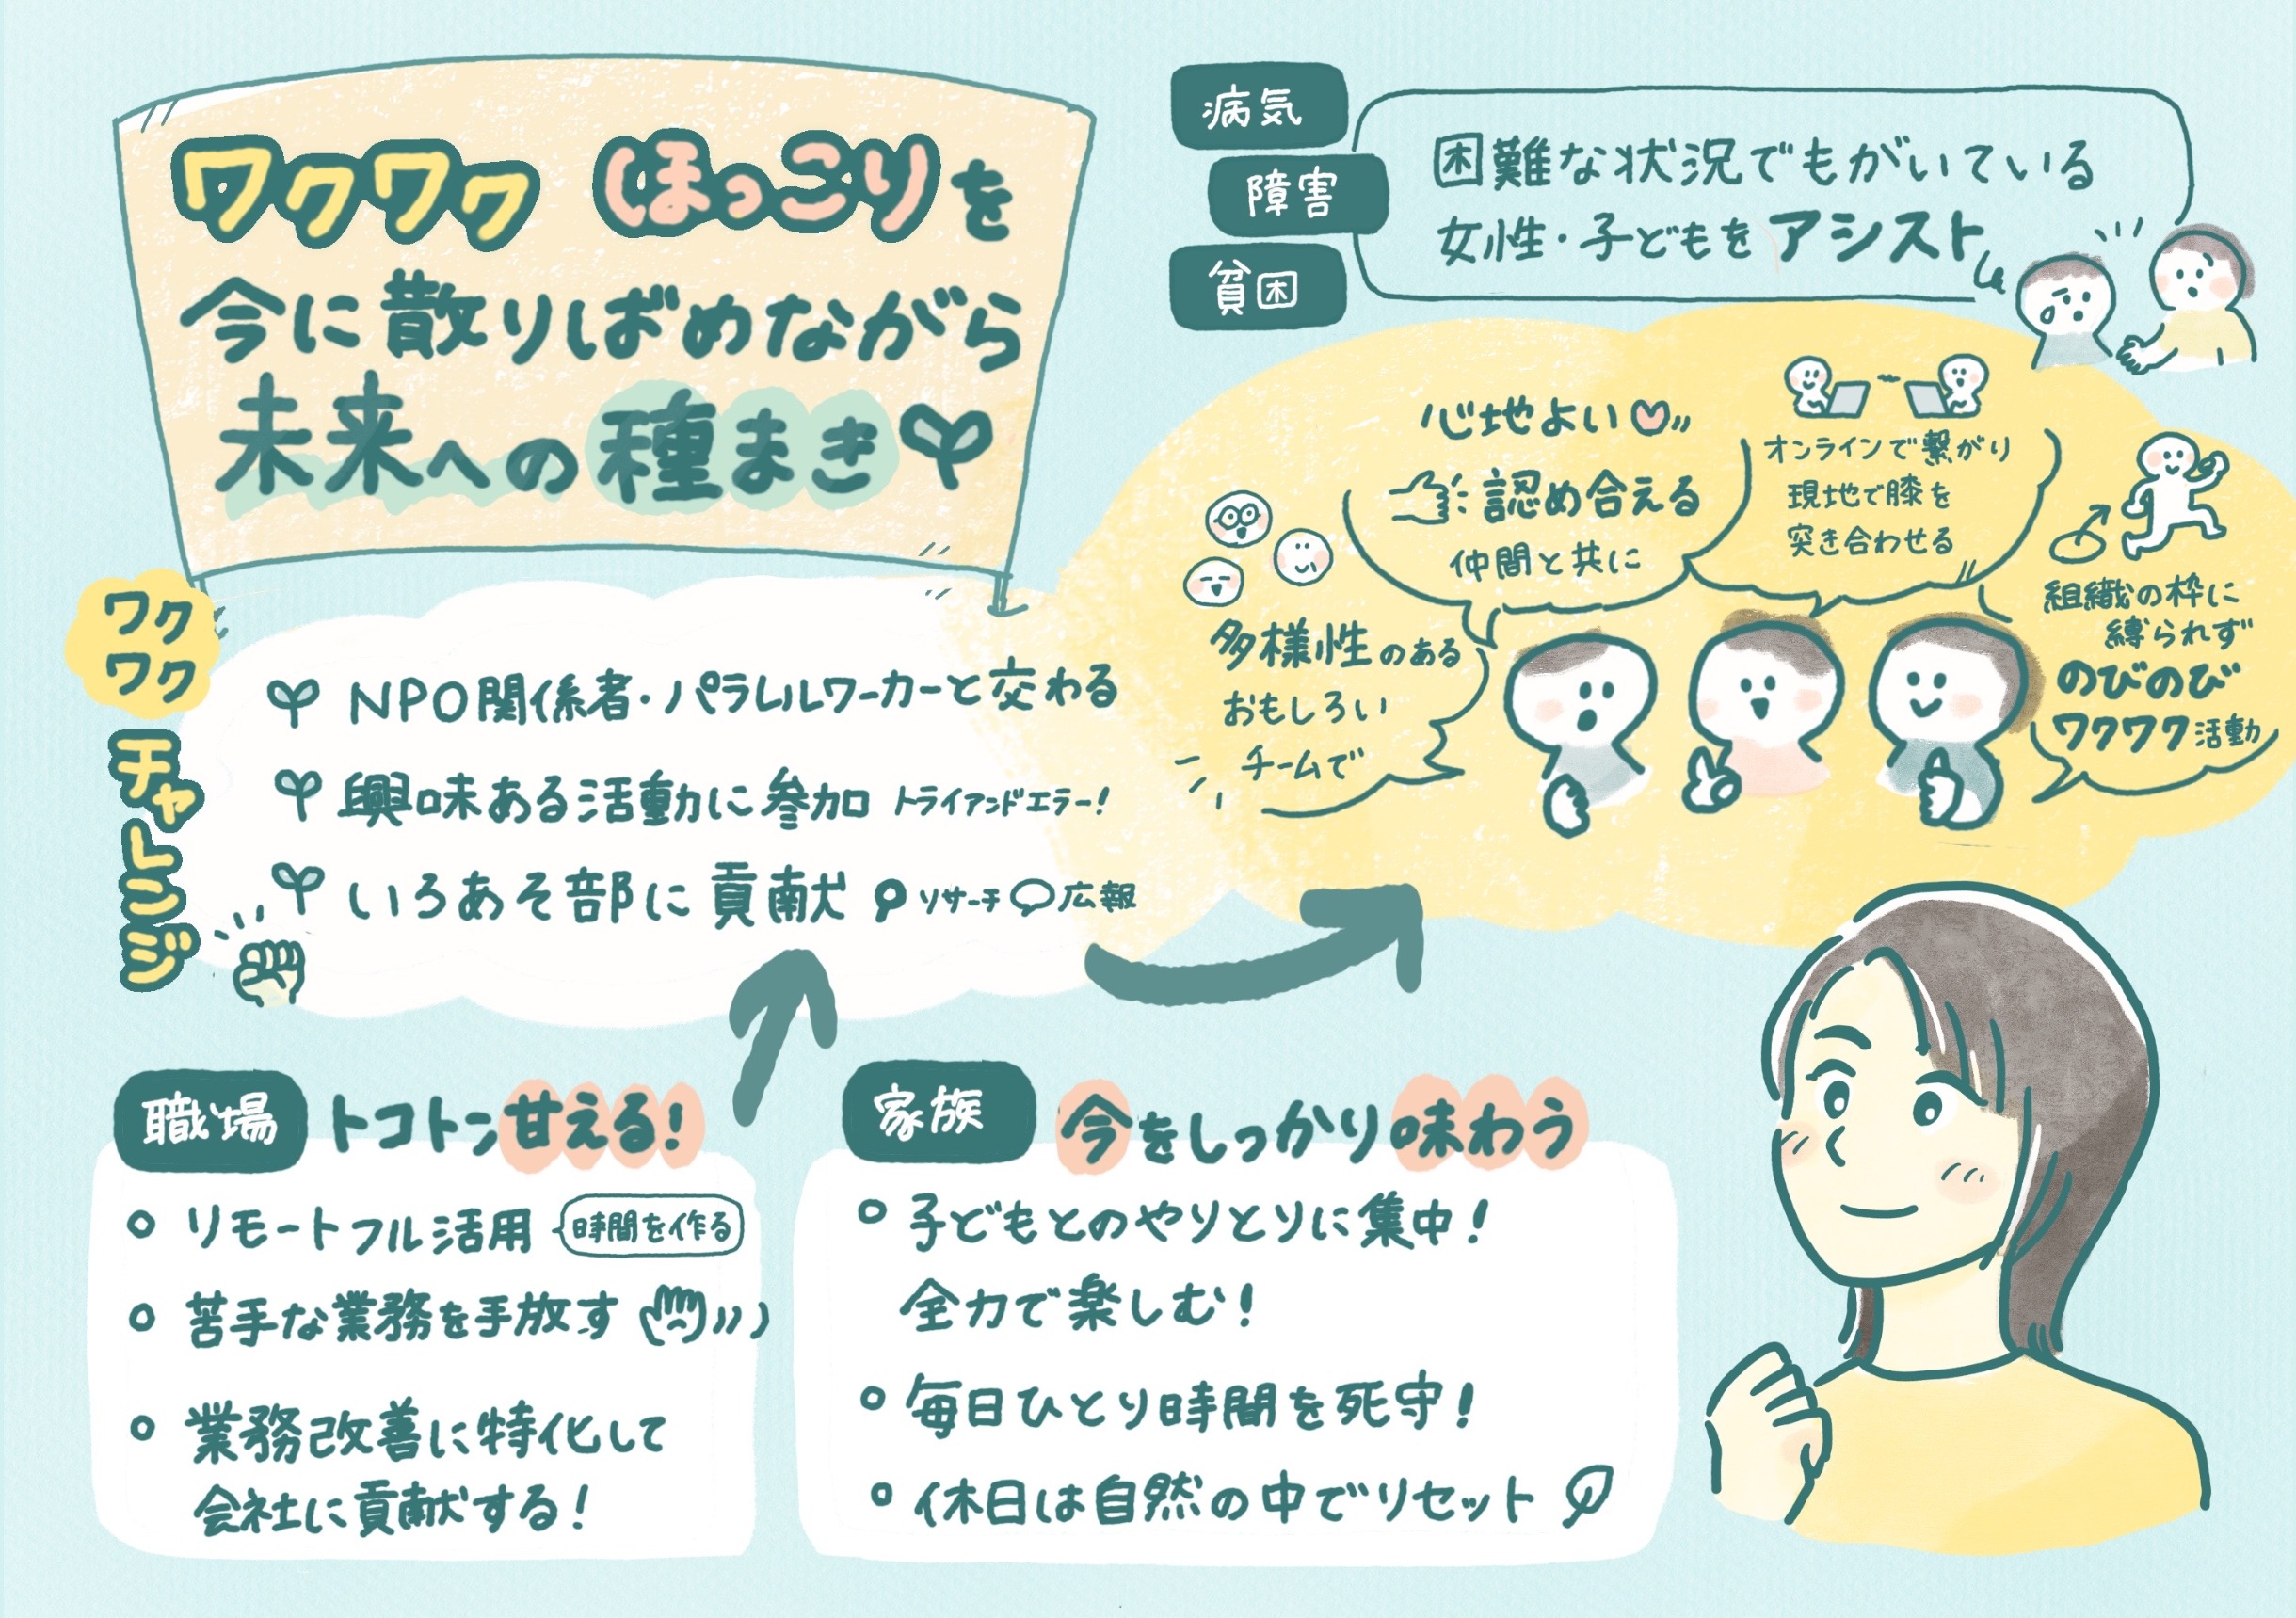 ワクワク ほっこりを
今に散りばめながら
未来への種まき
病気
障害
貧困
困難な状況でもがいている
女性・子どもをアシスト
心地よい
認め合える
仲間と共に
オンラインで繋がり
現地で膝を
突き合わせる
多様性のある
おもしろい
チームで
組織の枠に
縛られず
のびのび
ワクワク活動
ワク
ワク
チャレンジ
NPO関係者・パラレルワーカーと交わる
興味ある活動に参加 トライアンドエラー!
いろあそ部に貢献 リサーチ 広報
職場 トコトン甘える!
リモートフル活用 時間を作る
苦手な業務を手放す
業務改善に特化して
会社に貢献する!
家族 今をしっかり味わう
子どもとのやりとりに集中!
全力で楽しむ!
毎日ひとり時間を死守!
休日は自然の中でリセット